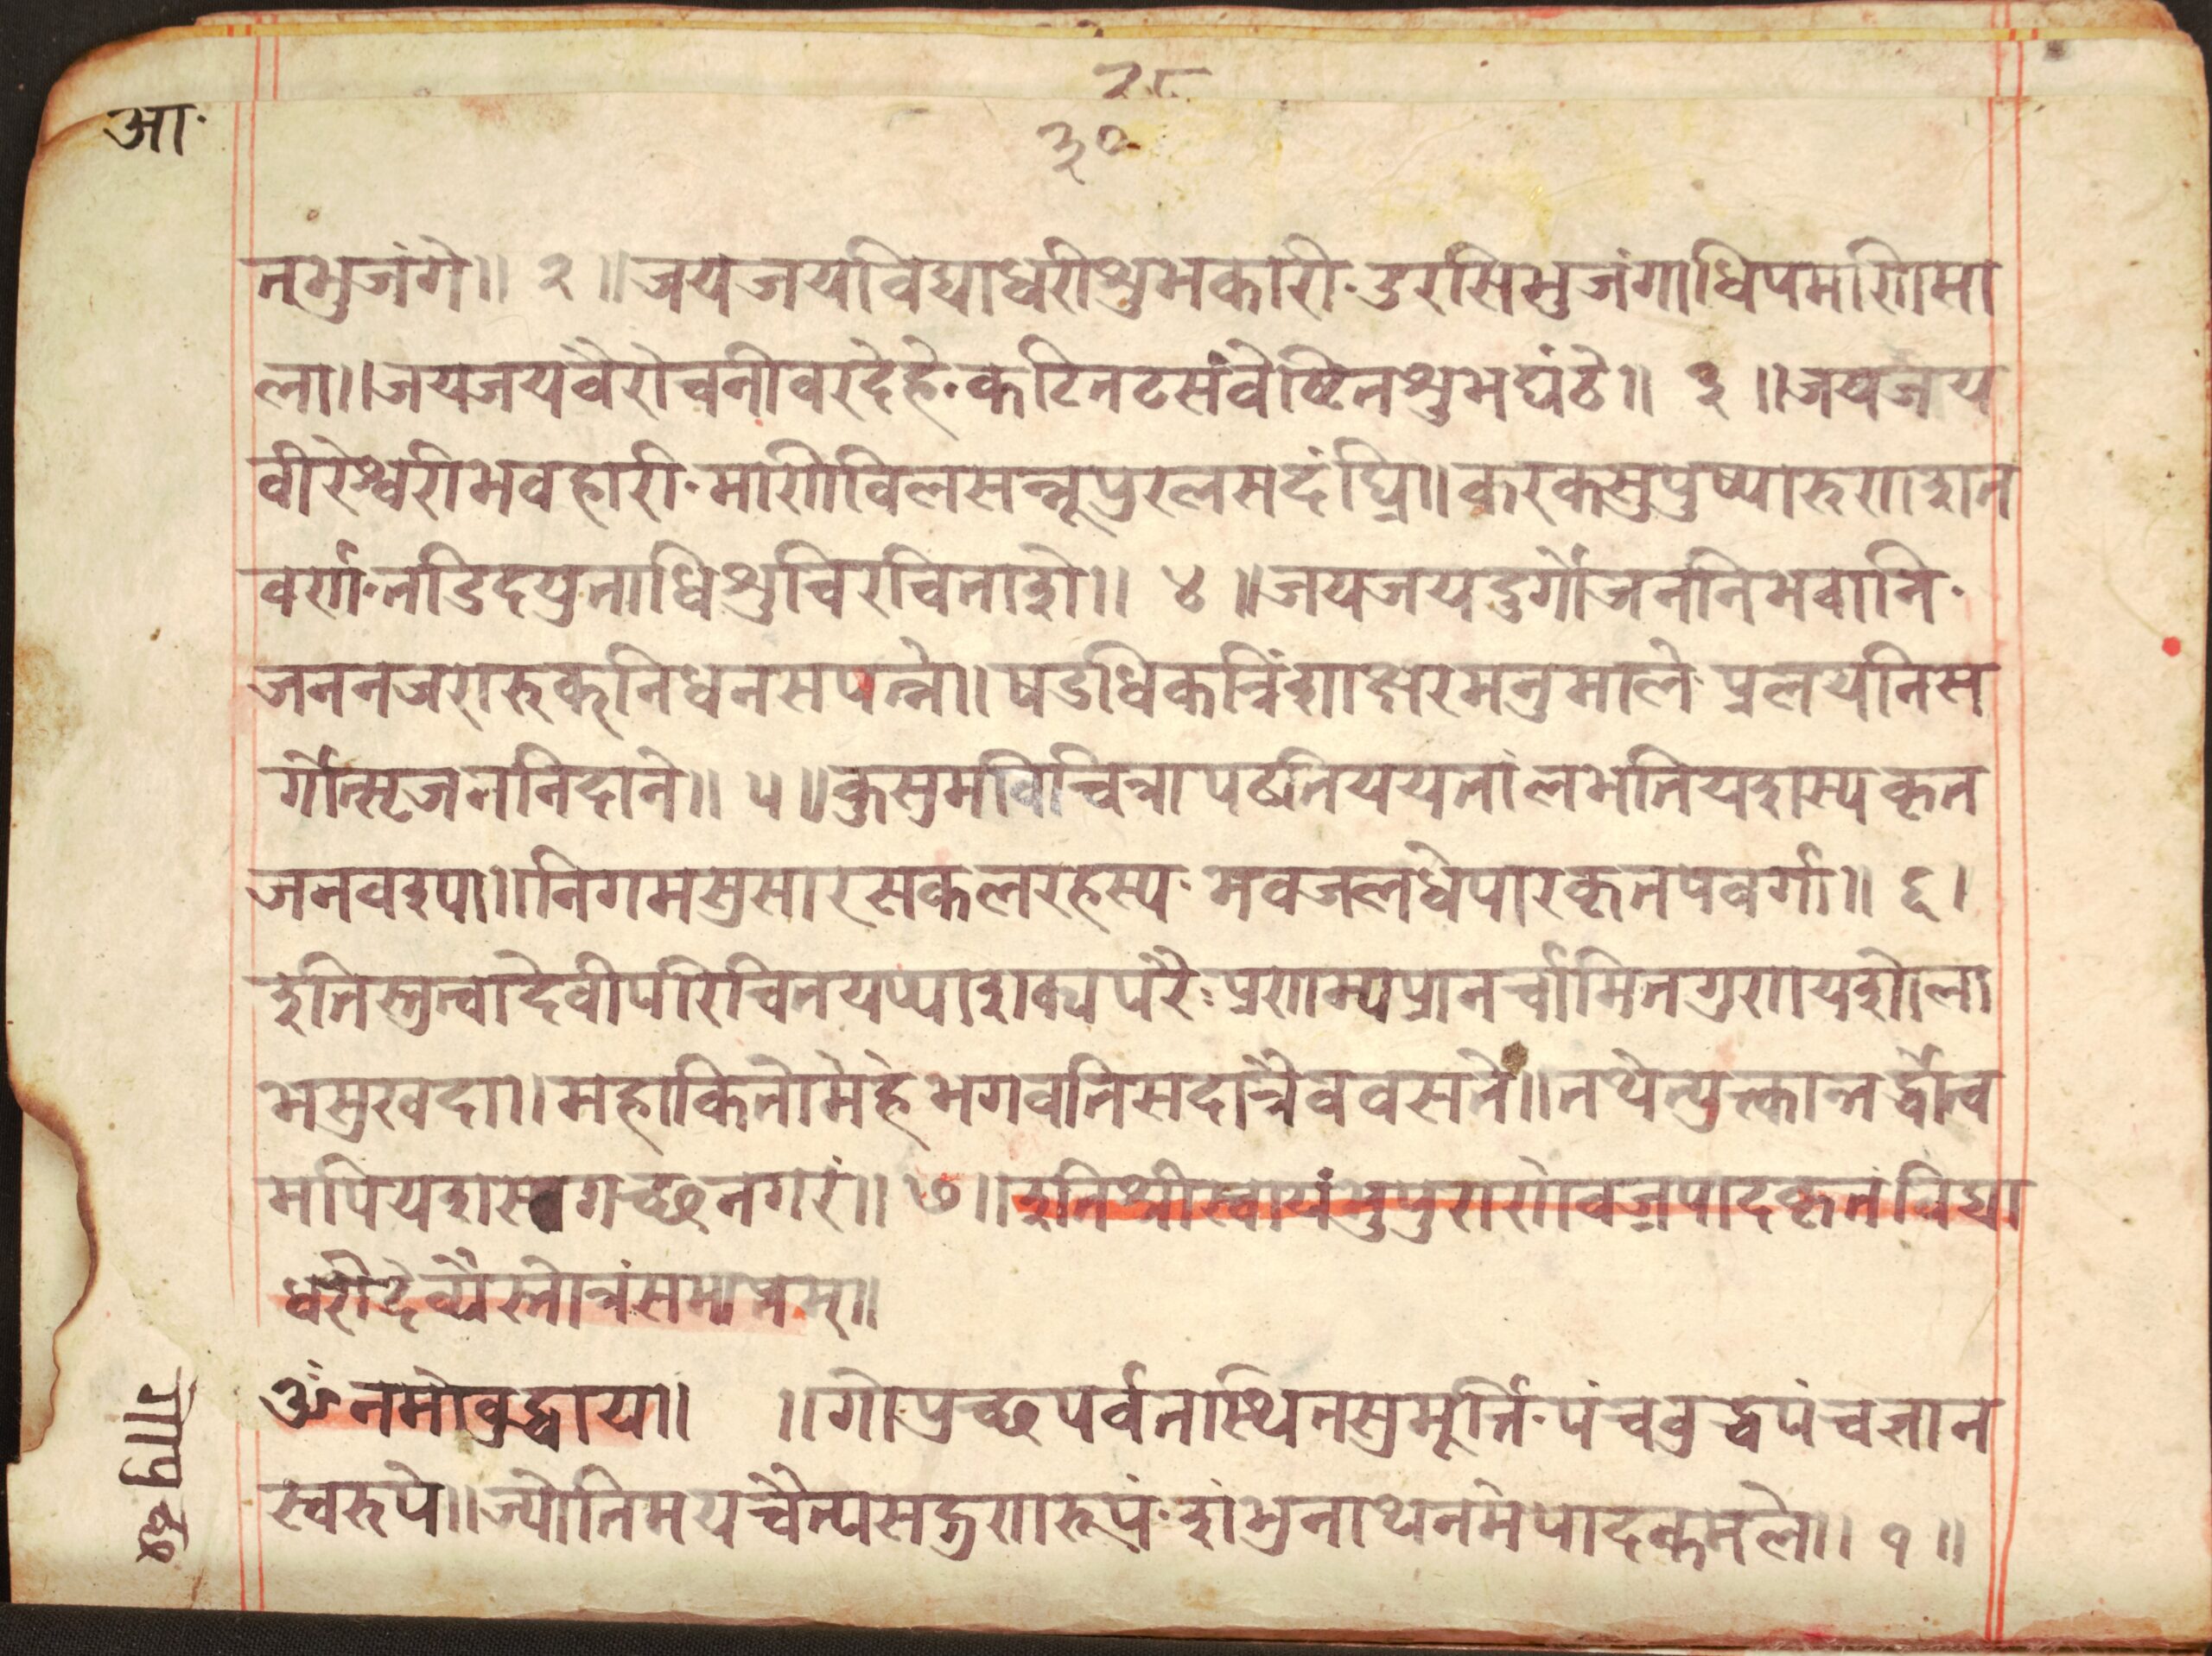 आ·
२८
३०
नभुजंगे॥ २ ॥जयजयविद्याधरीशुभकारी·उरसिभुजंगाधिपमणिमा
ला॥जयजयवैरोचनीवरदेहे·कटितटसंवेष्टितशुभघंठे॥ ३ ॥जयजय
वीरेश्वरीभवहारी·मणिविलसन्नूपुरलसदंघ्रि॥करकसुपुष्पारुणशत
वर्ण·तडिदयुताधिशुचिरचिताशे॥ ४ ॥जयजयदुर्गेजननिभवानि·
जननजरारुक्निधनसपत्ने॥षडधिकत्रिंशाक्षरमनुमाले·प्रलयनिस
र्गोत्सृजननिदाने॥ ५ ॥कुसुमविचित्रापठतिययतांलभतियशस्यकृत
जनवश्या॥निगमसुसारसकलरहस्य·भवजलधेपारकृतपवर्गा॥ ६।
इतिस्तुत्वादेवीपरिचितयप्याशक्यपरैः·प्रणम्यप्रानर्चामितगुणयशोला
भसुखदा॥महाकितोमेहेभगवतिसदात्रैववसते॥तथेत्युक्तान्तर्द्धोत्व
मपियशस्वगच्छनगरं॥ ७॥इतिश्रीस्वायंभुपुराणेवज्रपादकृतंविद्या
धरीदेव्यैस्तोत्रंसमाप्तम्॥
ॐनमोबुद्धाय॥ ॥गोपुच्छपर्वतास्थितसुमूर्त्ति·पंचबुद्धपंचज्ञान
स्वरुपे॥ज्योतिमयचैत्यसद्गुणरूपं·शंभुनाथनमेपादकमले॥ १ ॥
गोपुच्छ